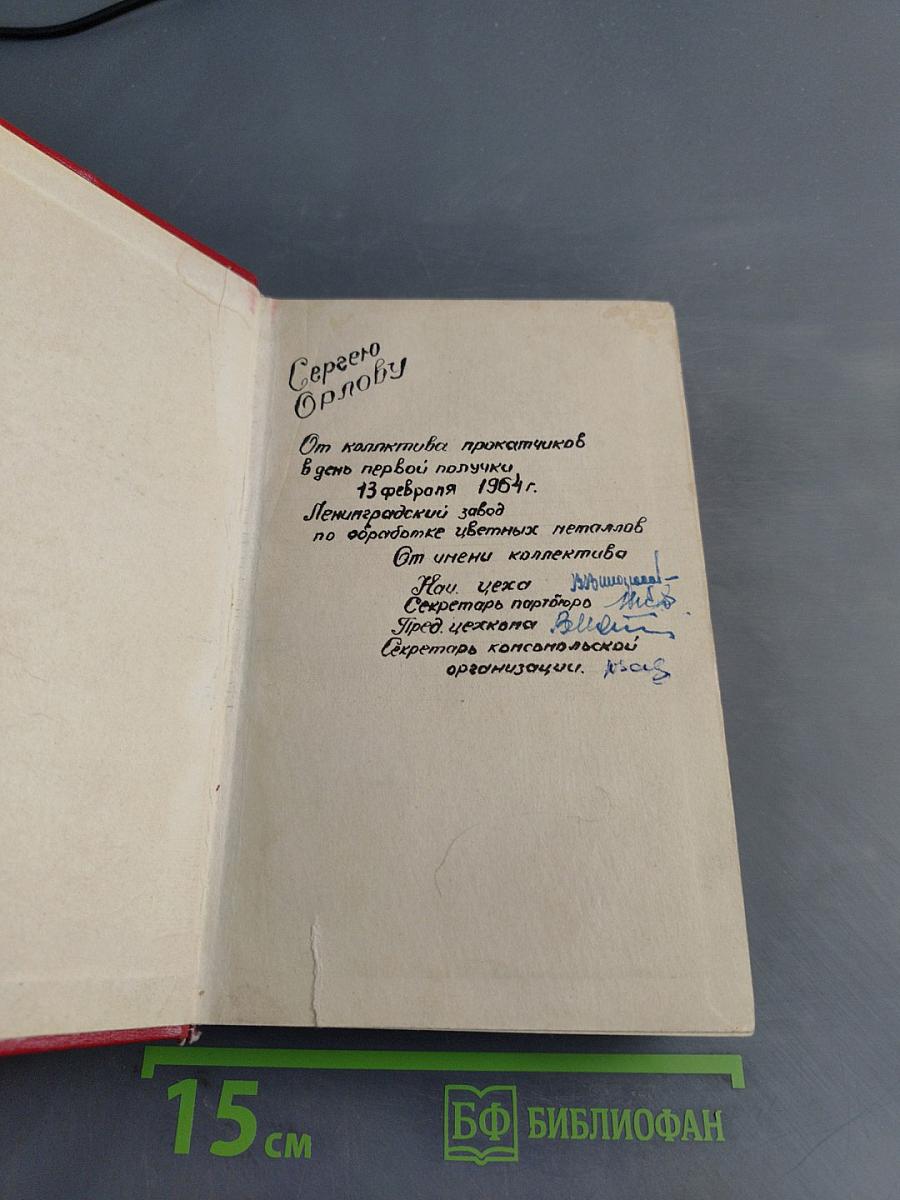 Сергею
Орлову
От коллктива прокатчиков
в день первой получки
13 февраля 1964 г.
Ленинградский завод
по обработке цветных металлов
От имени коллектива
Нач. цеха
Секретарь партбюро
Пред. цехкома
Секретарь комсомольской
организации.
15 см
БФ БИБЛИОФАН